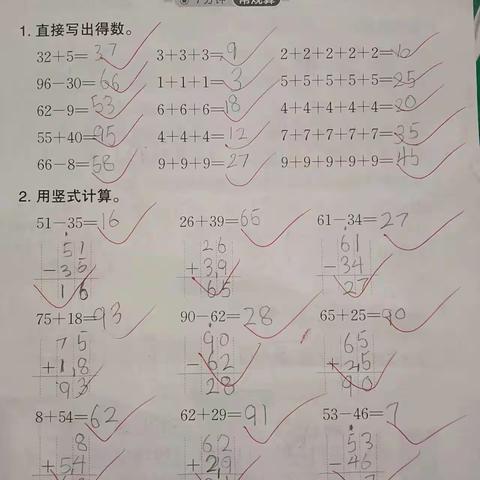 7分钟 常规算
1. 直接写出得数。
32+5=37 3+3+3=9 2+2+2+2+2=10
96-30=66 1+1+1=3 5+5+5+5+5=25
62-9=53 6+6+6=18 4+4+4+4+4=20
55+40=95 4+4+4=12 7+7+7+7+7=35
66-8=58 9+9+9=27 9+9+9+9+9=45
2. 用竖式计算。
51-35=16 26+39=65 61-34=27
51 26 61
-35 +39 -34
16 65 27
75+18=93 90-62=28 65+25=90
75 90 65
+18 -62 +25
93 28 90
8+54=62 62+29=91 53-46=7
8 62 53
+54 +29 -46